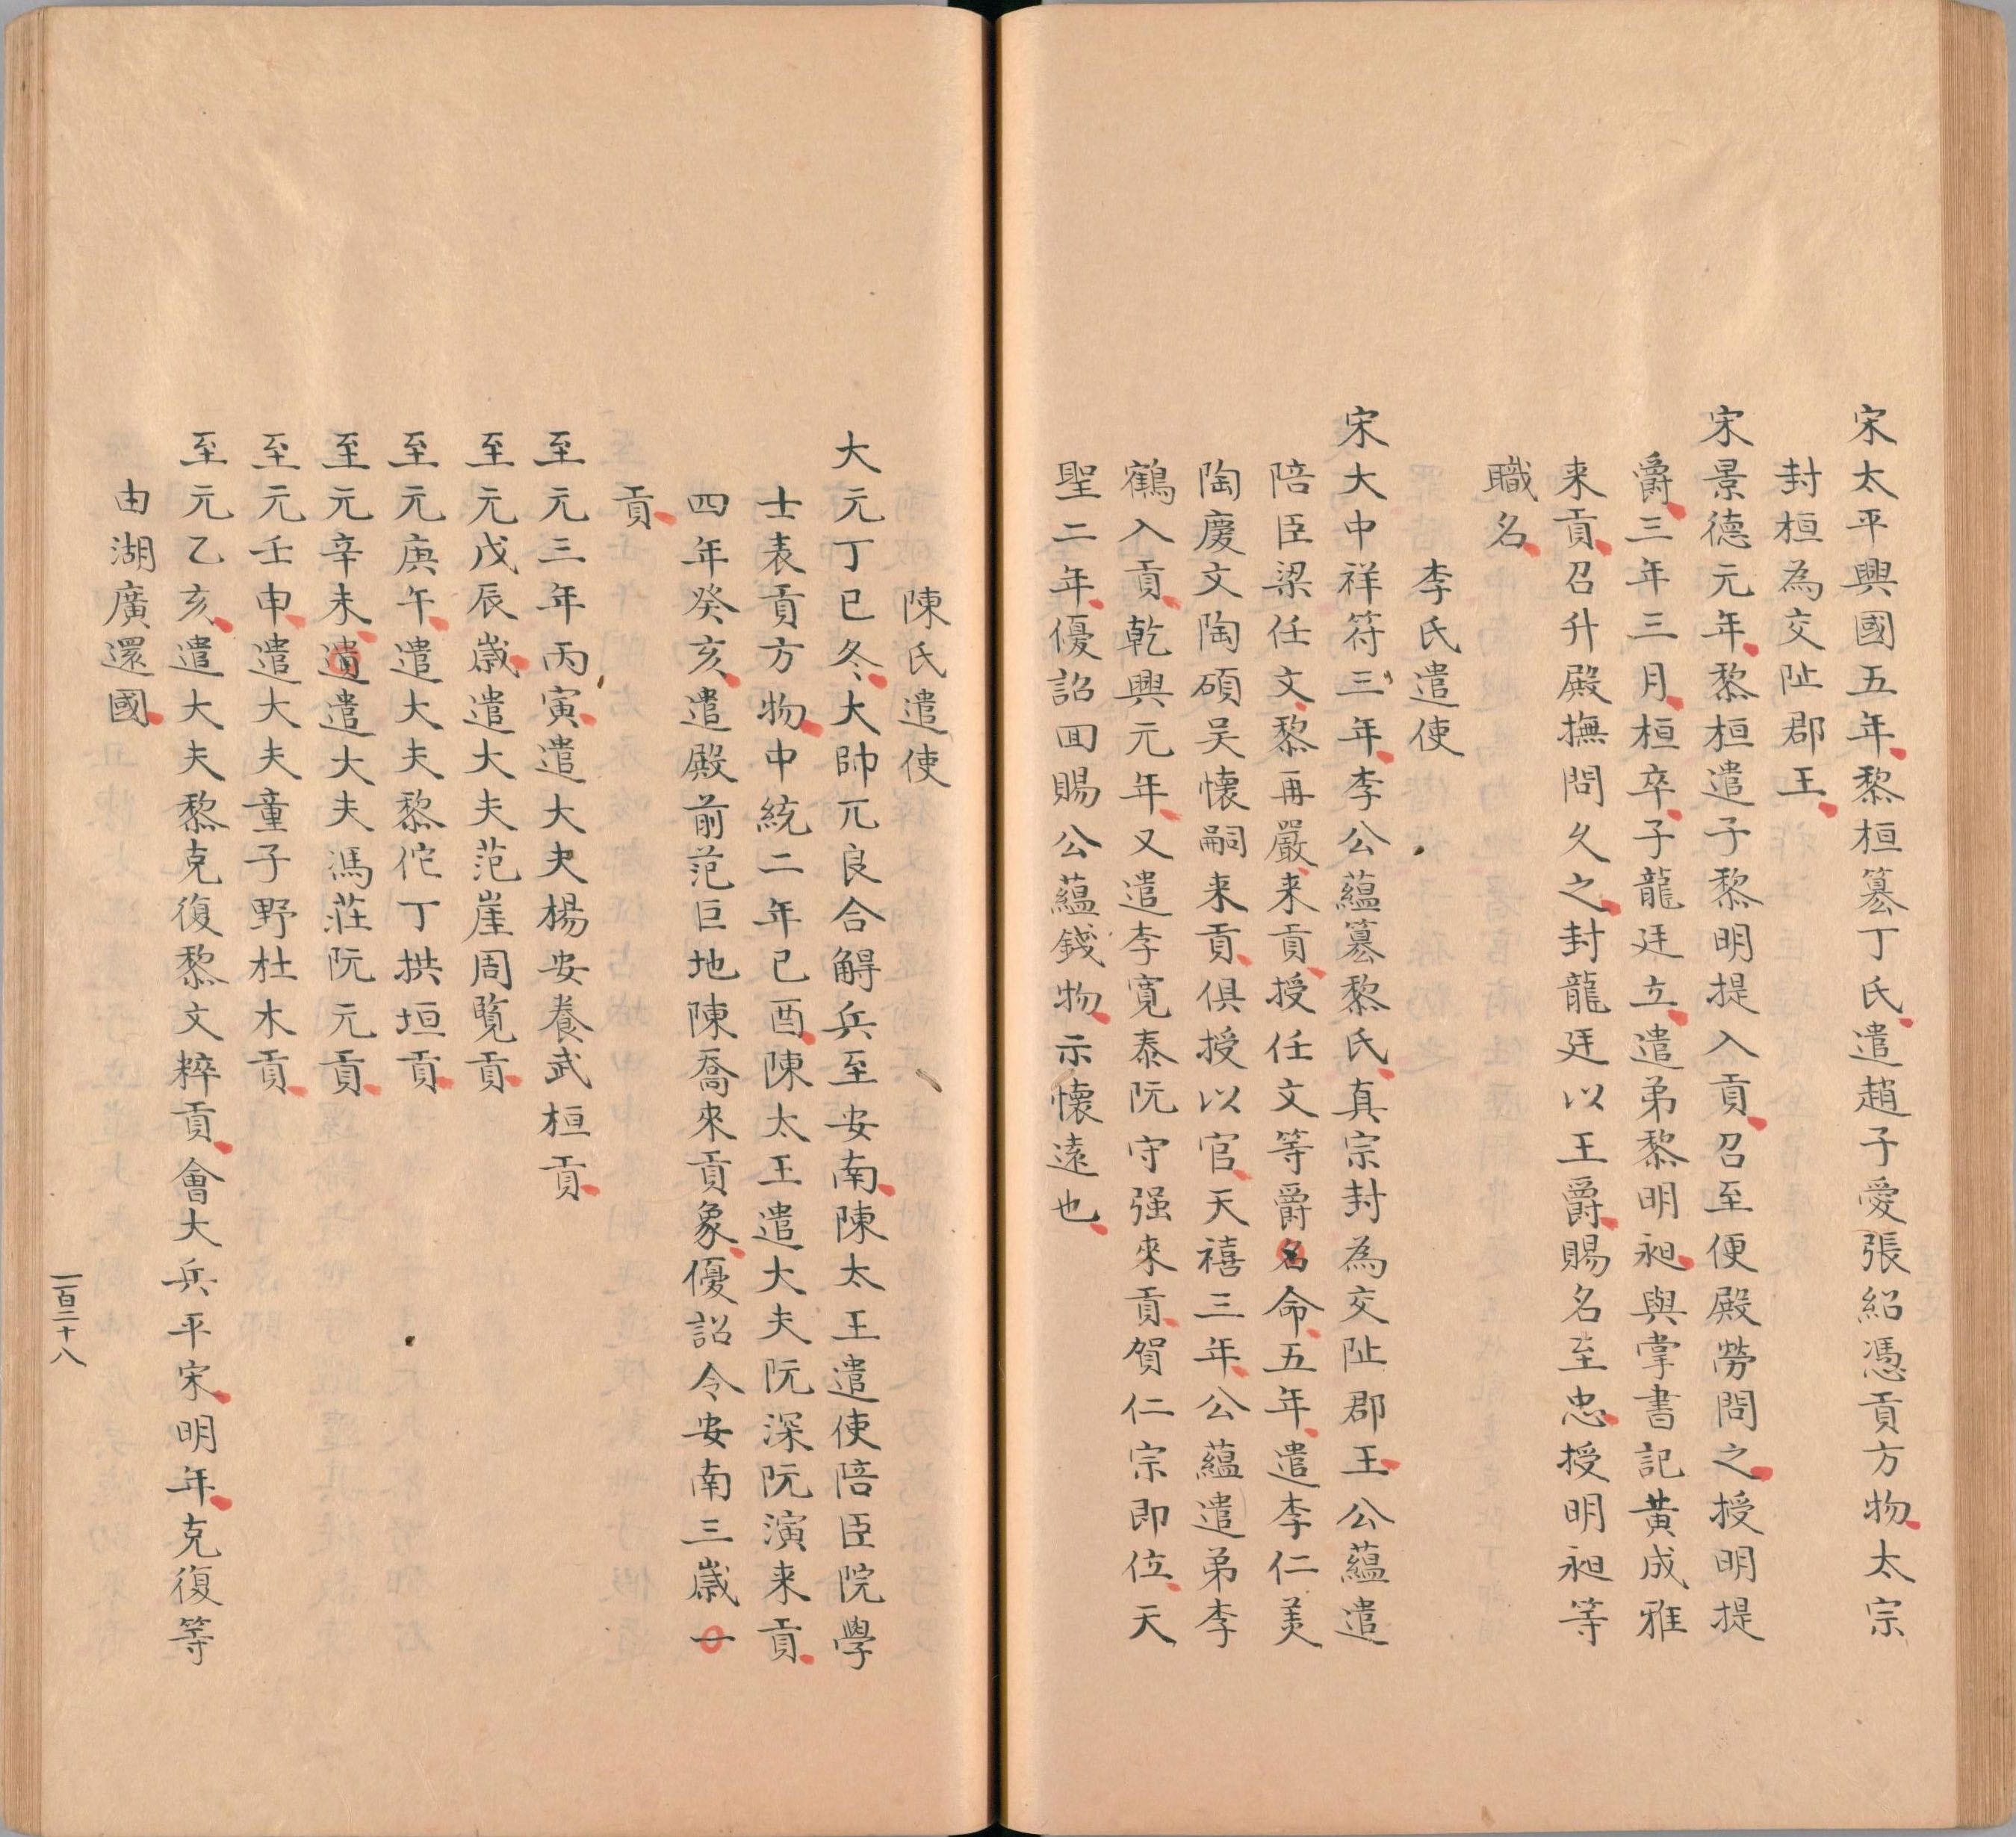 宋太平興國五年黎桓篡丁氏遣趙子愛張紹憑貢方物太宗
封桓為交阯郡王
宋景德元年黎桓遣子黎明提入貢召至便殿勞問之授明提
爵三年三月桓卒子龍廷立遣弟黎明昶與掌書記黃成雅
来貢召升殿撫問久之封龍廷以王爵賜名至忠授明昶等
職名
李氏遣使
宋大中祥符三年李公蘊篡黎氏真宗封為交阯郡王公蘊遣
陪臣梁任文黎再嚴来貢授任文等爵名命五年遣李仁美
陶慶文陶碩吴懷嗣来貢俱授以官天禧三年公蘊遣弟李
鶴入貢乾興元年又遣李寬泰阮守强來貢賀仁宗即位天
聖二年優詔囬賜公蘊錢物示懷遠也
陳氏遣使
大元丁巳冬大帥兀良合䚟兵至安南陳太王遣使陪臣院學
士表貢方物中統二年已酉陳太王遣大夫阮深阮演来貢
四年癸亥遣殿前范巨地陳喬來貢象優詔令安南三歲一
貢
至元三年丙寅遣大夫楊安養武桓貢
至元戊辰歲遣大夫范崖周覽貢
至元庚午遣大夫黎佗丁拱垣貢
至元辛未遺遣大夫馮莊阮元貢
至元壬申遣大夫童子野杜木貢
至元乙亥遣大夫黎克復黎文粹貢會大兵平宋明年克復等
由湖廣還國
一百二十八